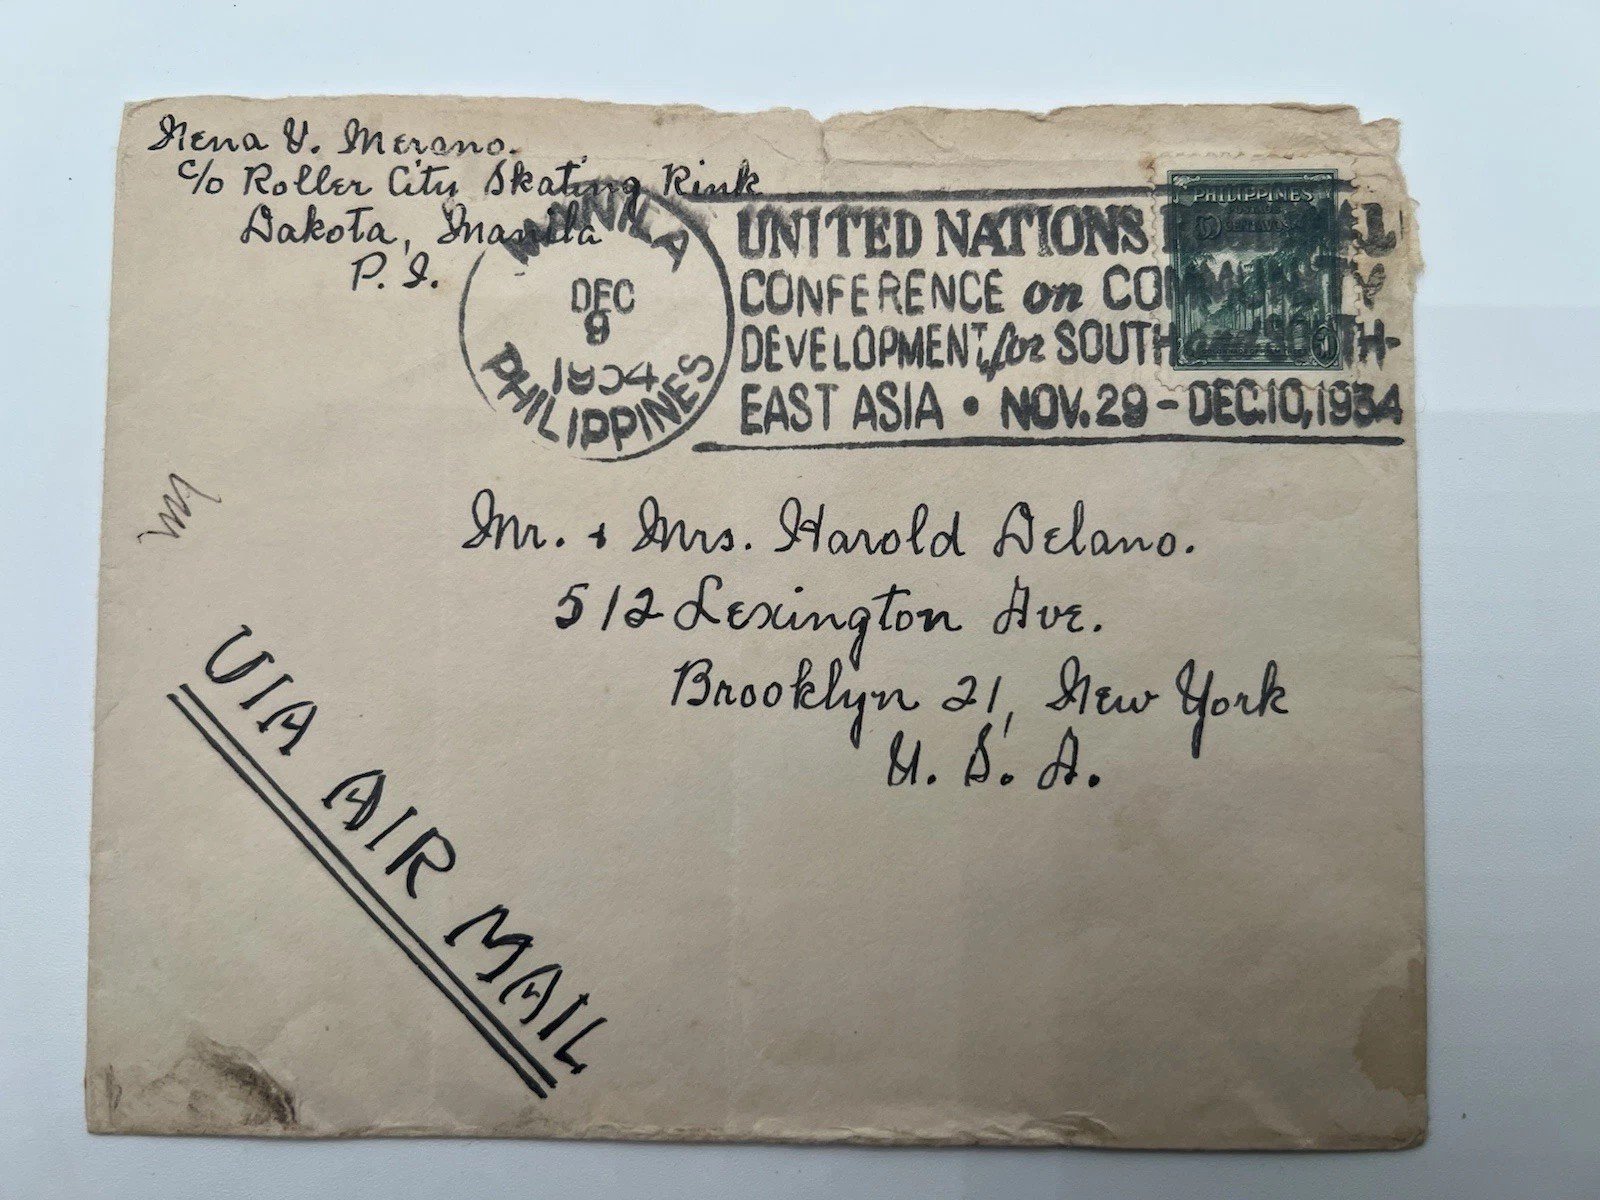 Nena V. Merano.
c/o Roller City Skating Rink
Dakota, Manila
P. I.
MANILA
DEC
9
PHILIPPINES
UNITED NATIONS
CONFERENCE on COMMUNITY
DEVELOPMENT for SOUTH SOUTH-
EAST ASIA • NOV. 29 - DEC. 10, 1954
PHILIPPINES
CENTAVOS
50
Mr. + Mrs. Harold Delano.
512 Lexington Ave.
Brooklyn 21, New York
U. S. A.
VIA AIR MAIL